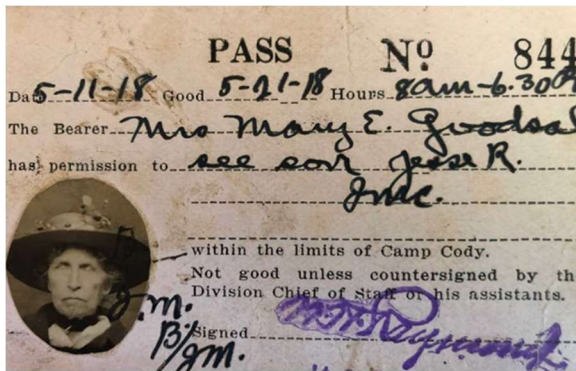 PASS No 844
Date 5-11-18 Good 5-21-18 Hours 8am-6.30P
The Bearer Mrs Mary E.
has permission to see son Jesse R.
within the limits of Camp Cody.
Not good unless countersigned by th
Division Chief of Staff or his assistants.
J.M.
Signed
B/JM.